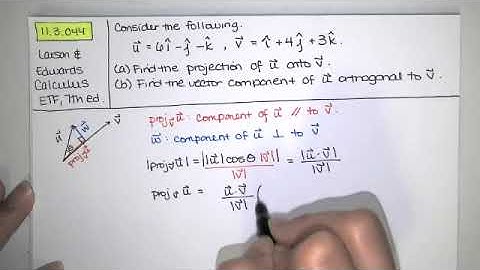 11.3.044
Larson &
Edwards
Calculus
ETF, 7th ed.
Consider the following.
u⃗ = 6î - ĵ - k̂ , v⃗ = î + 4ĵ + 3k̂.
(a) Find the projection of u⃗ onto v⃗.
(b) Find the vector component of u⃗ orthogonal to v⃗.
u⃗ w⃗ v⃗
proj_v⃗ u⃗
proj_v⃗ u⃗ : component of u⃗ // to v⃗.
w⃗: component of u⃗ ⊥ to v⃗
|proj_v⃗ u⃗| = ||u⃗| cosθ |v⃗|| / |v⃗| = |u⃗ · v⃗| / |v⃗|
proj_v⃗ u⃗ = u⃗ · v⃗ / |v⃗| (